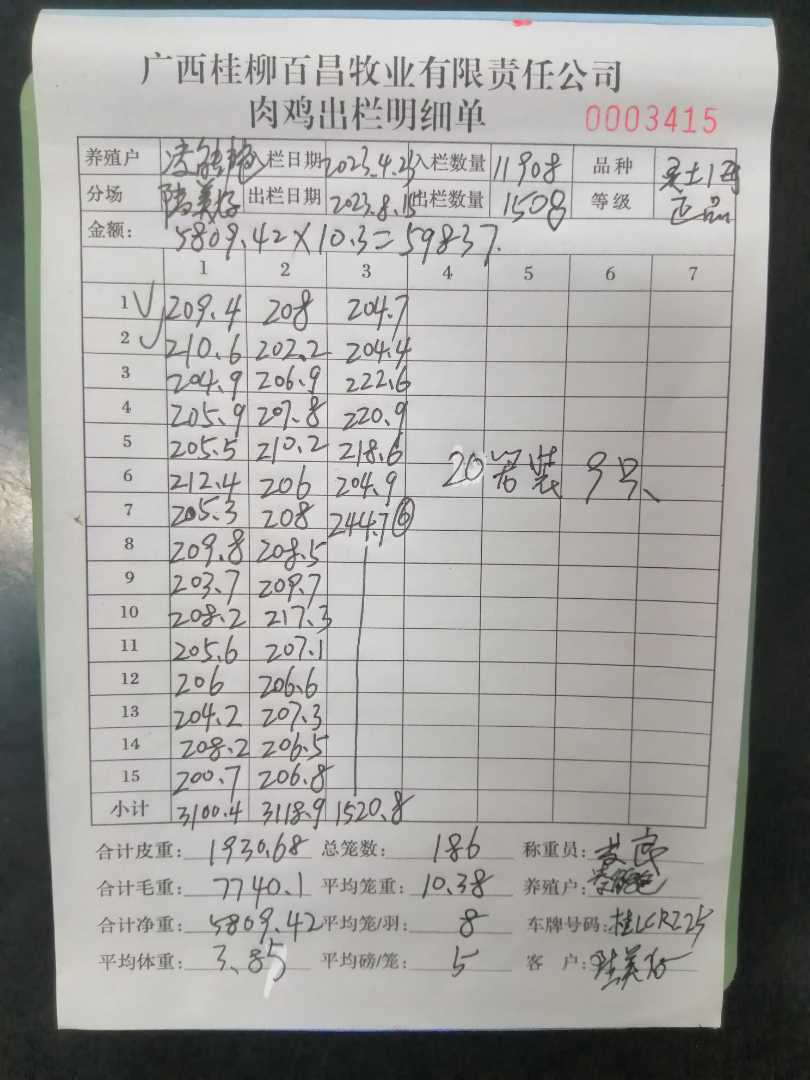 广西桂柳百昌牧业有限责任公司
肉鸡出栏明细单 0003415
养殖户 入栏日期 2023.4.23 入栏数量 11908 品种
分场 陆美好 出栏日期 2023.8.15 出栏数量 1508 等级 正品
金额: 5809.42×10.3=59837.
1 2 3 4 5 6 7
1 √ 209.4 208 204.7
2 √ 210.6 202.2 204.4
3 204.9 206.9 222.6
4 205.9 207.8 220.9
5 205.5 210.2 218.6
6 212.4 206 204.9 20 装 9号、
7 205.3 208 244.7 ⑥
8 209.8 208.5
9 203.7 209.7
10 208.2 217.3
11 205.6 207.1
12 206 206.6
13 204.2 207.3
14 208.2 206.5
15 200.7 206.8
小计 3100.4 3118.9 1520.8
合计皮重: 1930.68 总笼数: 186 称重员:
合计毛重: 7740.1 平均笼重: 10.38 养殖户:
合计净重: 5809.42 平均笼/羽: 8 车牌号码: 桂LCRZ25
平均体重: 3.85 平均磅/笼: 5 客户: 陆美好